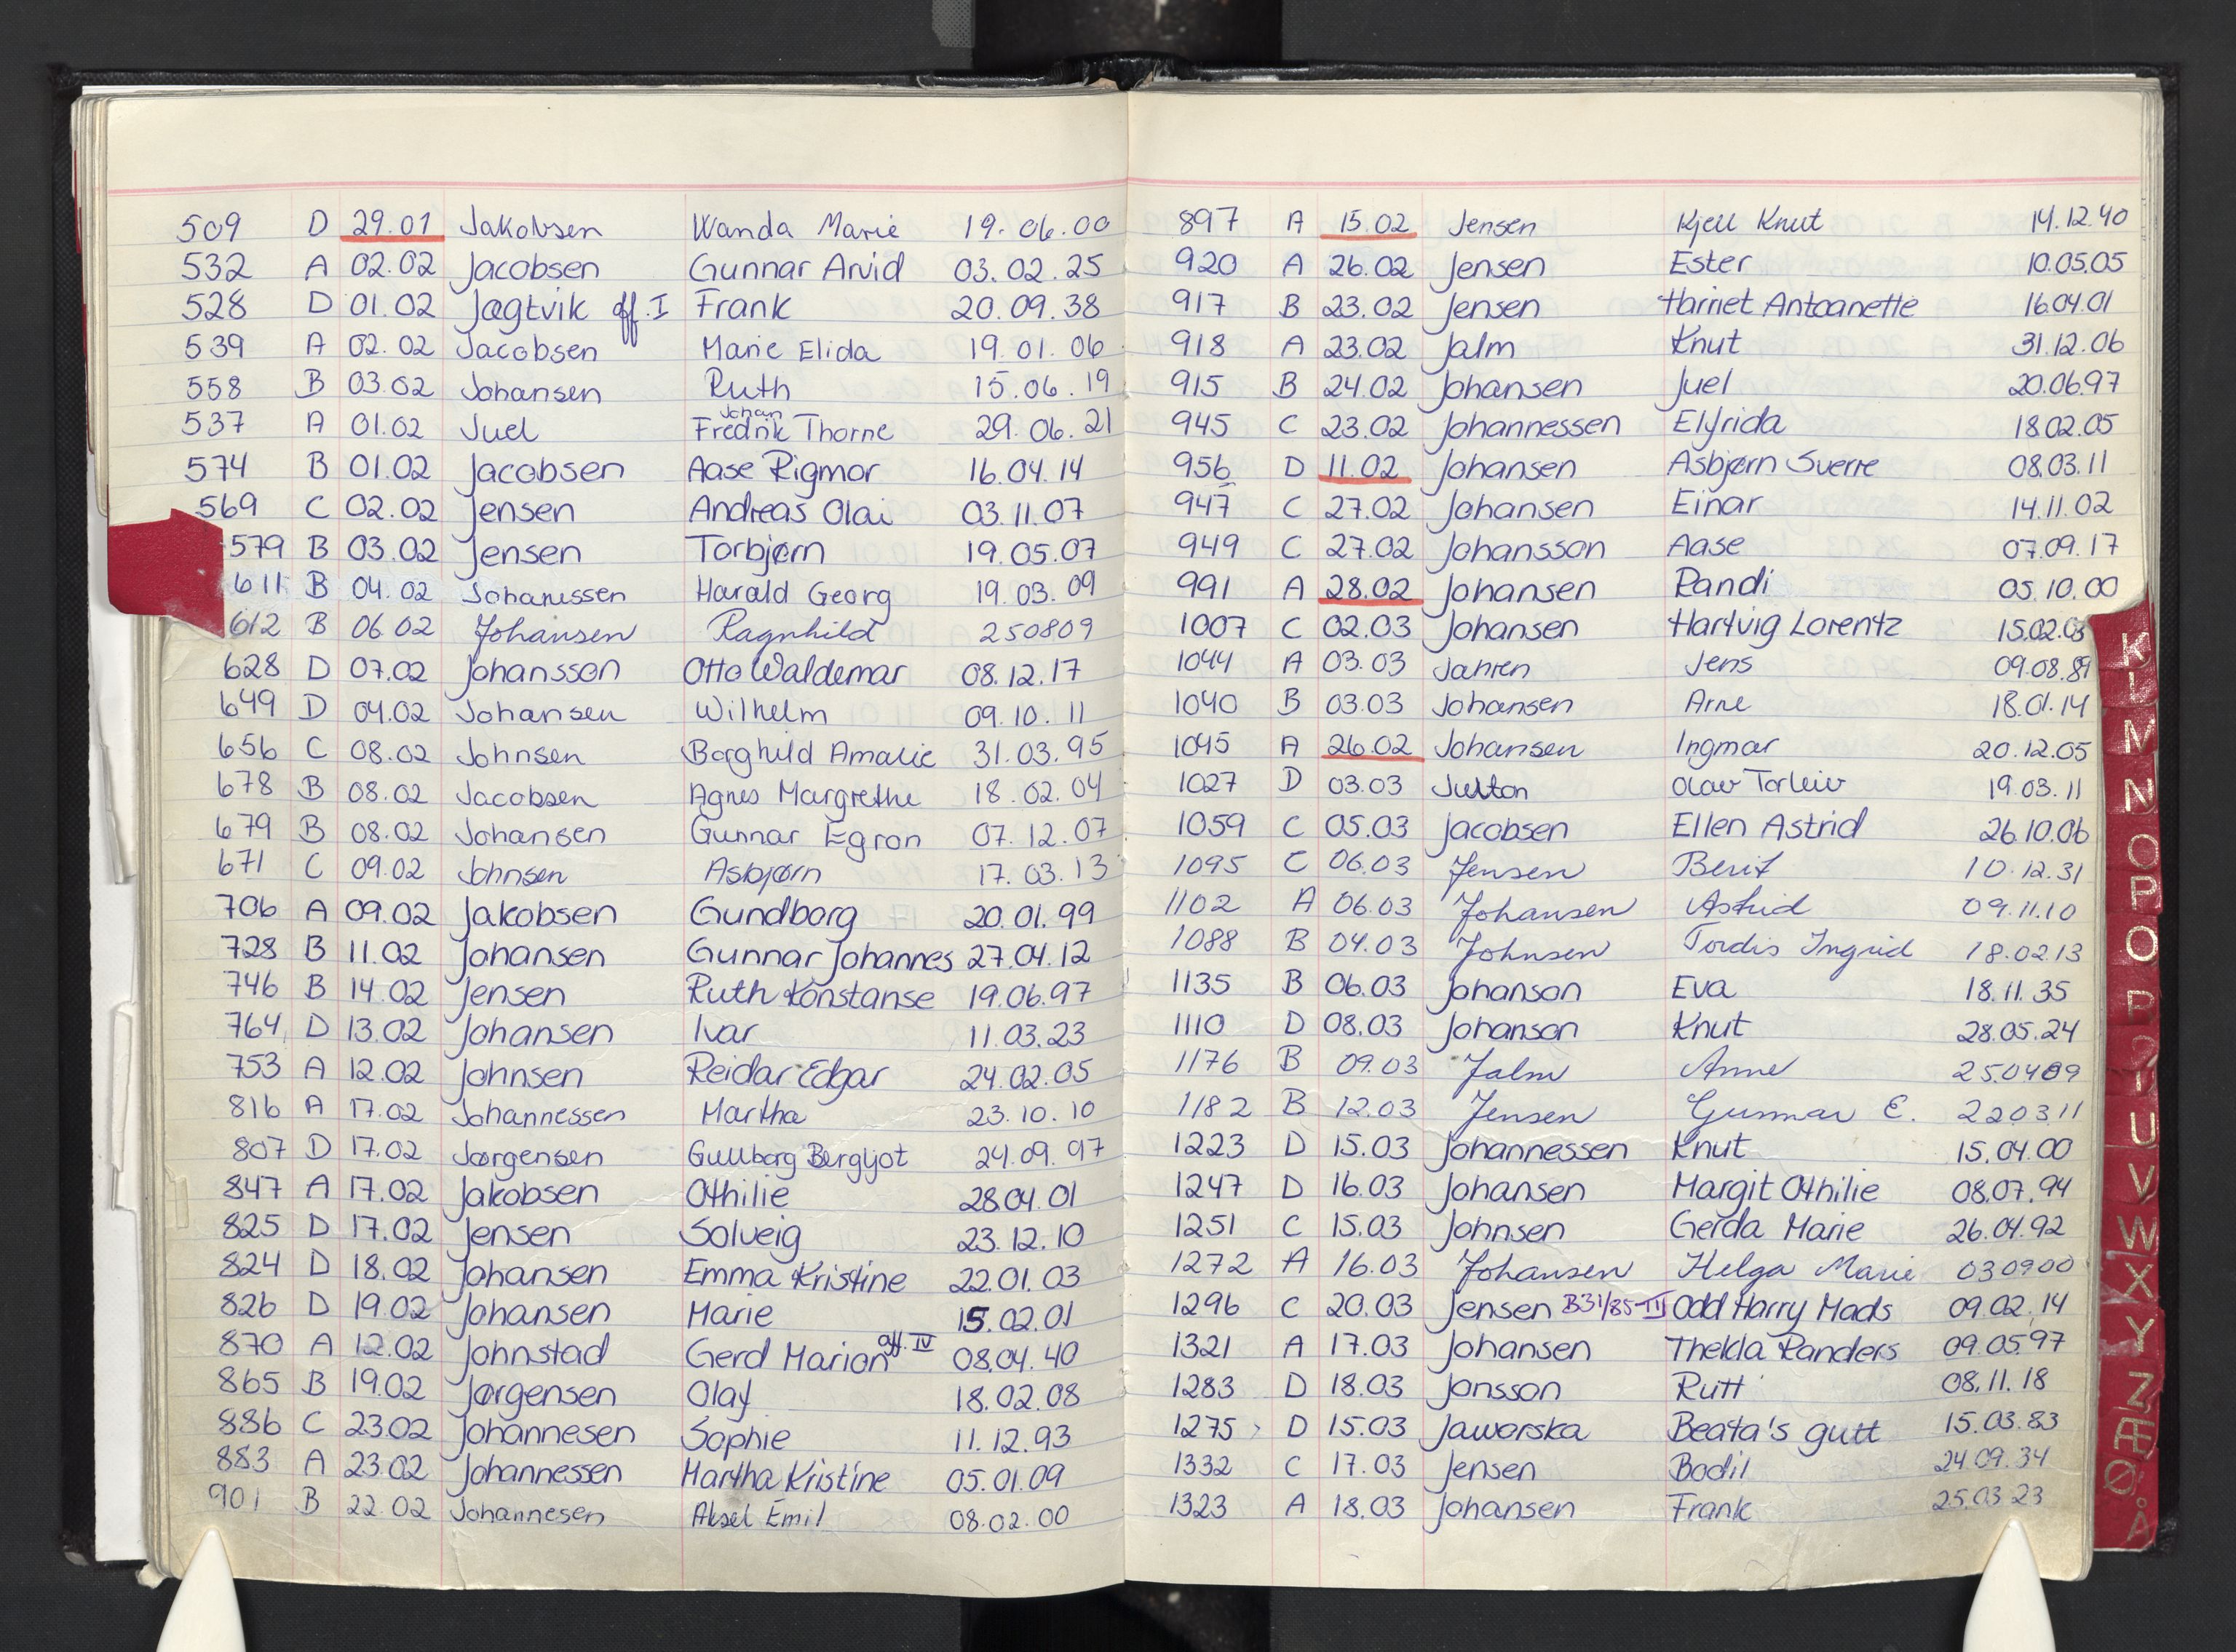 509 D 29.01 Jakobsen Wanda Marie 19.06.00
532 A 02.02 Jacobsen Gunnar Arvid 03.02.25
528 D 01.02 Jagtvik off. I Frank 20.09.38
539 A 02.02 Jacobsen Marie Elida 19.01.06
558 B 03.02 Johansen Ruth 15.06.19
Johan
537 A 01.02 Juel Fredrik Thorne 29.06.21
574 B 01.02 Jacobsen Aase Rigmor 16.04.14
569 C 02.02 Jensen Andreas Olai 03.11.07
579 B 03.02 Jensen Torbjørn 19.05.07
611 B 04.02 Johanessen Harald Georg 19.03.09
612 B 06.02 Johansen Ragnhild 250809
628 D 07.02 Johansson Otto Waldemar 08.12.17
649 D 04.02 Johansen Wilhelm 09.10.11
656 C 08.02 Johnsen Borghild Amalie 31.03.95
678 B 08.02 Jacobsen Agnes Margrethe 18.02.04
679 B 08.02 Johansen Gunnar Egron 07.12.07
671 C 09.02 Johnsen Asbjørn 17.03.13
706 A 09.02 Jakobsen Gundborg 20.01.99
728 B 11.02 Johansen Gunnar Johannes 27.04.12
746 B 14.02 Jensen Ruth Konstanse 19.06.97
764 D 13.02 Johansen Ivar 11.03.23
753 A 12.02 Johnsen Reidar Edgar 24.02.05
816 A 17.02 Johannessen Martha 23.10.10
807 D 17.02 Jørgensen Gullborg Bergljot 24.09.97
847 A 17.02 Jakobsen Othilie 28.04.01
825 D 17.02 Jensen Solveig 23.12.10
824 D 18.02 Johansen Emma Kristine 22.01.03
826 D 19.02 Johansen Marie 15.02.01
870 A 12.02 Johnstad Gerd Marion off. IV 08.04.40
865 B 19.02 Jørgensen Olaf 18.02.08
886 C 23.02 Johannesen Sophie 11.12.93
883 A 23.02 Johannessen Martha Kristine 05.01.09
901 B 22.02 Johannesen Aksel Emil 08.02.00
897 A 15.02 Jensen Kjell Knut 14.12.40
920 A 26.02 Jensen Ester 10.05.05
917 B 23.02 Jensen Harriet Antoanette 16.04.01
918 A 23.02 Jalm Knut 31.12.06
915 B 24.02 Johansen Juel 20.06.97
945 C 23.02 Johannessen Elfrida 18.02.05
956 D 11.02 Johansen Asbjørn Sverre 08.03.11
947 C 27.02 Johansen Einar 14.11.02
949 C 27.02 Johansson Aase 07.09.17
991 A 28.02 Johansen Randi 05.10.00
1007 C 02.03 Johansen Hartvig Lorentz 15.02.
1044 A 03.03 Jahren Jens 09.08.89
1040 B 03.03 Johansen Arne 18.01.14
1045 A 26.02 Johansen Ingmar 20.12.05
1027 D 03.03 Julton Olav Torleiv 19.03.11
1059 C 05.03 Jacobsen Ellen Astrid 26.10.06
1095 C 06.03 Jensen Berit 10.12.31
1102 A 06.03 Johansen Astrid 09.11.10
1088 B 04.03 Johnsen Tordis Ingrid 18.02.13
1135 B 06.03 Johanson Eva 18.11.35
1110 D 08.03 Johanson Knut 28.05.24
1176 B 09.03 Jalm Anne 250409
1182 B 12.03 Jensen Gunnar E. 220311
1223 D 15.03 Johannessen Knut 15.04.00
1247 D 16.03 Johansen Margit Othilie 08.07.94
1251 C 15.03 Johnsen Gerda Marie 26.04.92
1272 A 16.03 Johansen Helga Marie 030900
1296 C 20.03 Jensen B31/85-II Odd Harry Mads 09.02.14
1321 A 17.03 Johansen Thelda Randers 09.05.97
1283 D 18.03 Jonsson Rutt 08.11.18
1275 D 15.03 Jaworska Beata's gutt 15.03.83
1332 C 17.03 Jensen Bodil 24.09.34
1323 A 18.03 Johansen Frank 25.03.23
K
M
N
O
P
U
V
W
X
Y
Z
Æ
Ø
Å